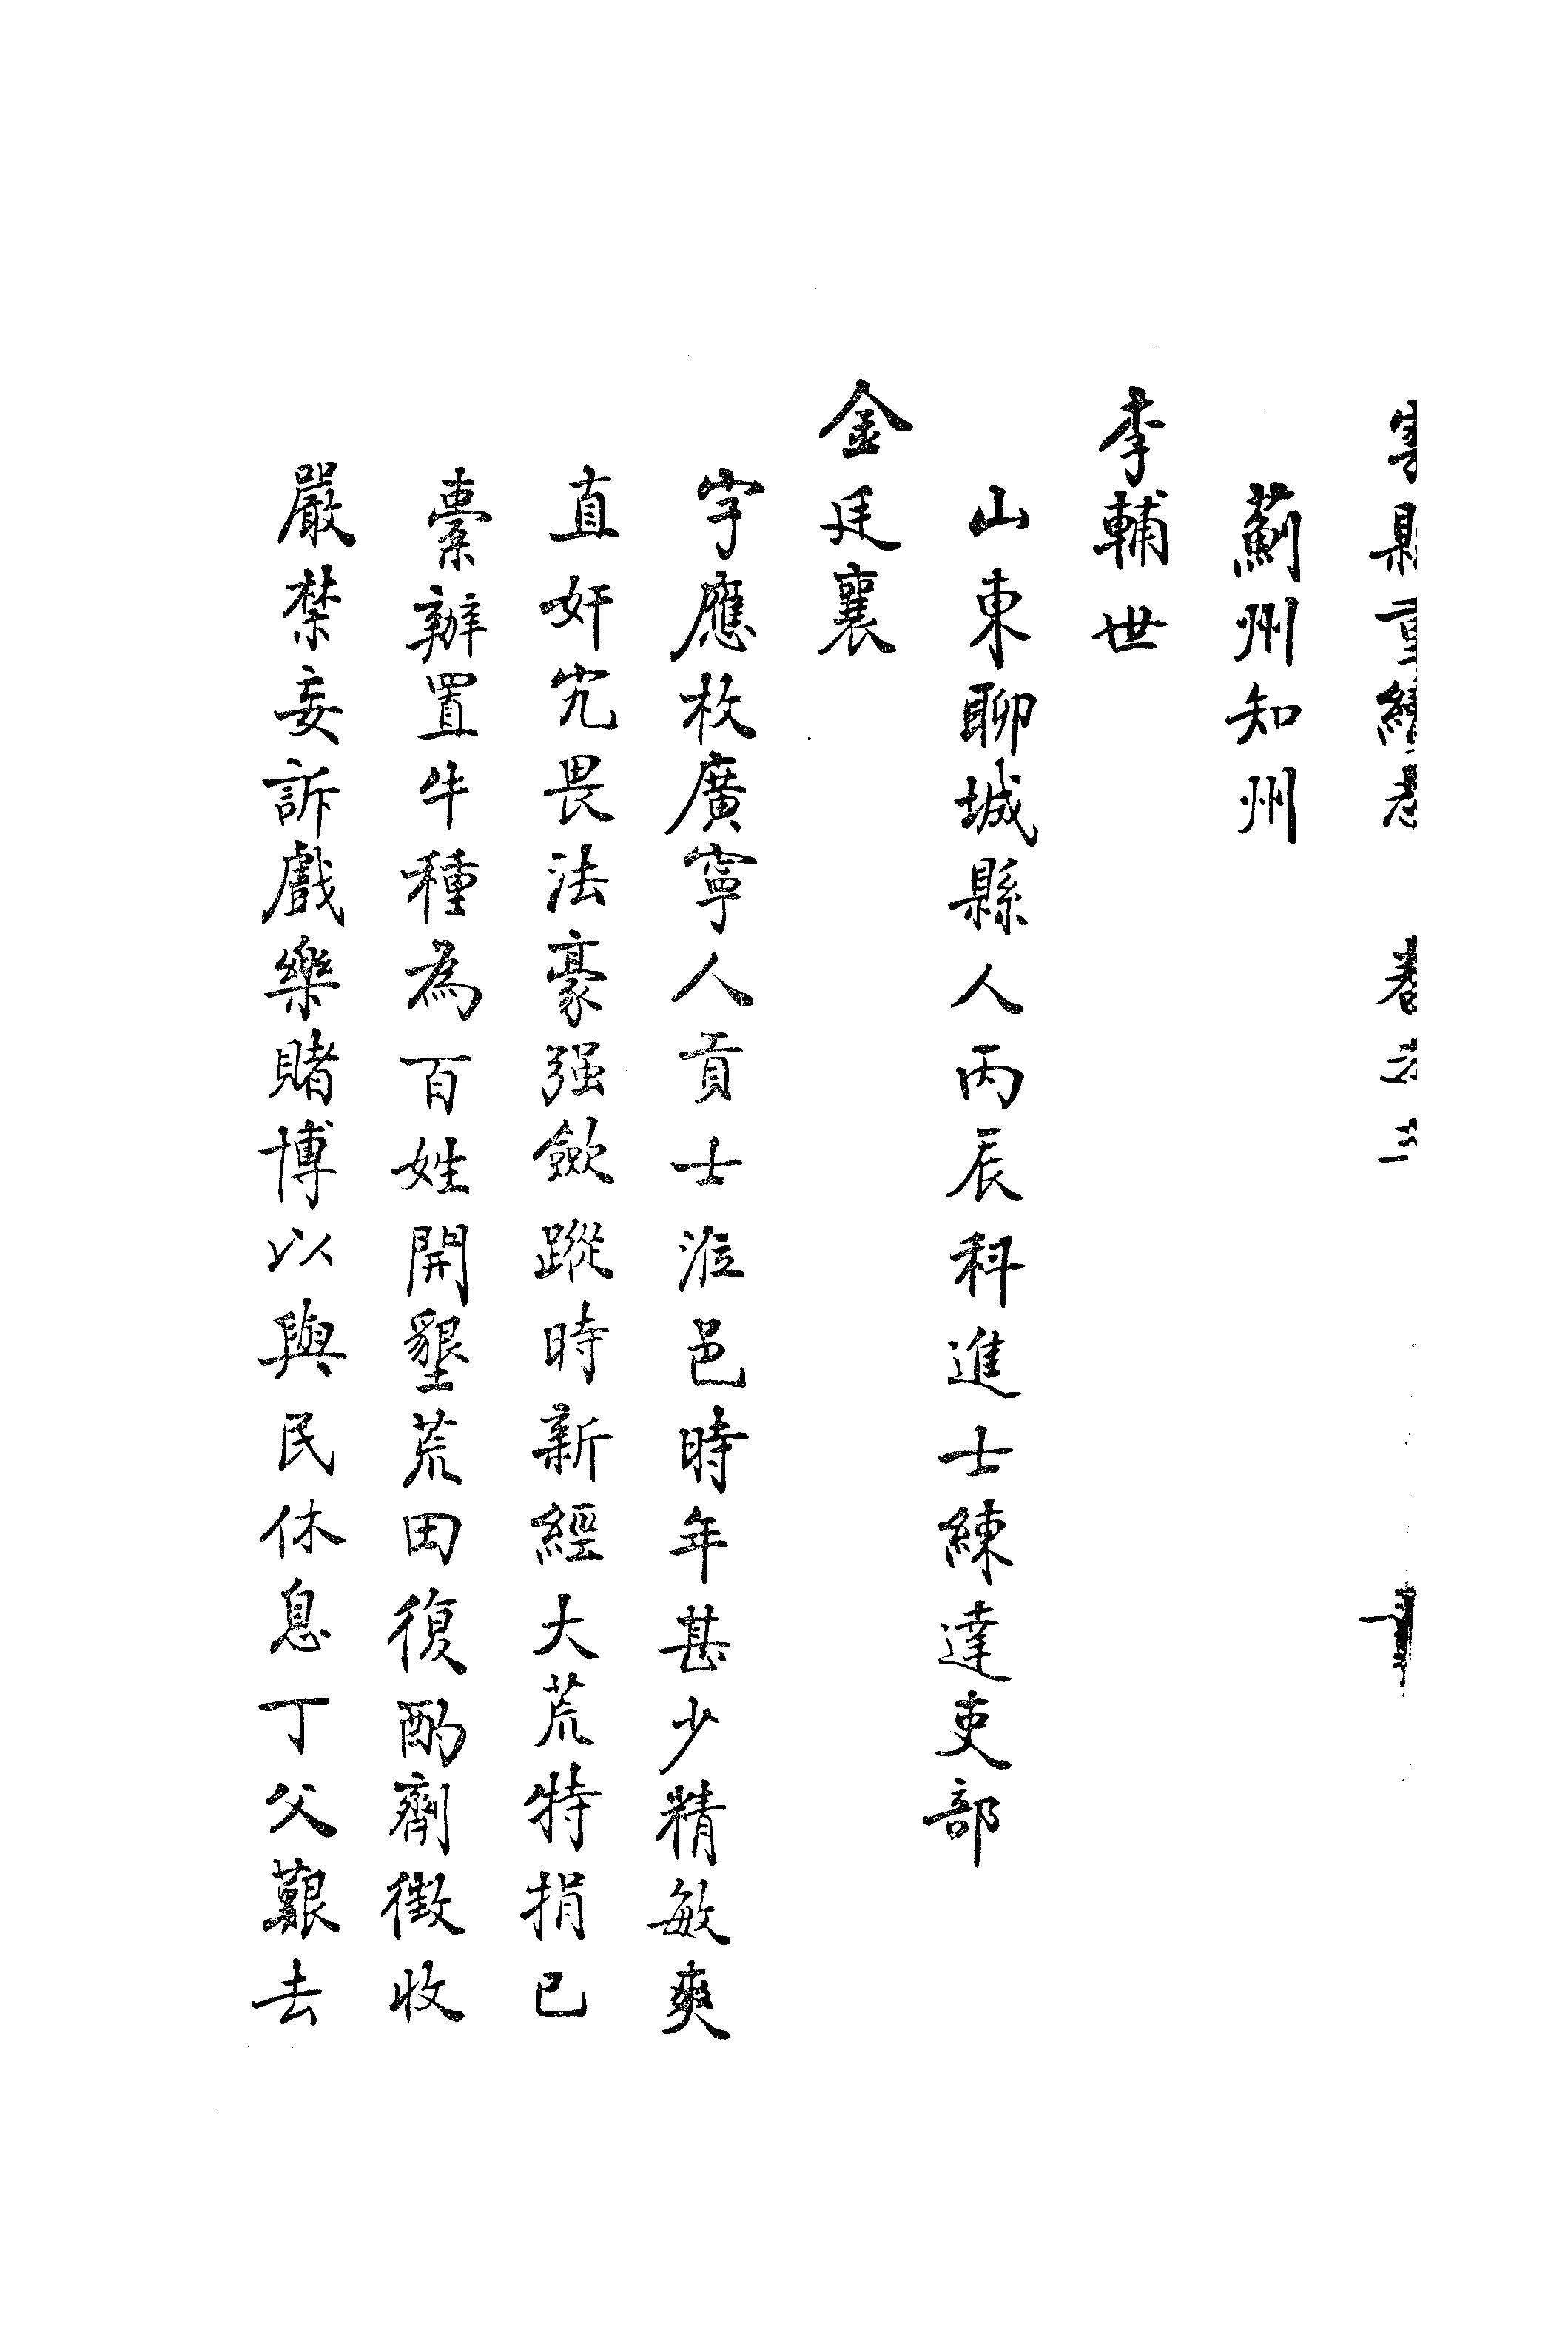 薊州知州
李輔世
山東聊城縣人丙辰科進士練達吏部
金廷襄
字應枚廣寧人貢士涖邑時年甚少精敏爽
直奸宄畏法豪强歛蹤時新經大荒特捐已
橐辦置牛種為百姓開墾荒田復酌劑徵收
嚴禁妄訴戲樂賭博以與民休息丁父艱去